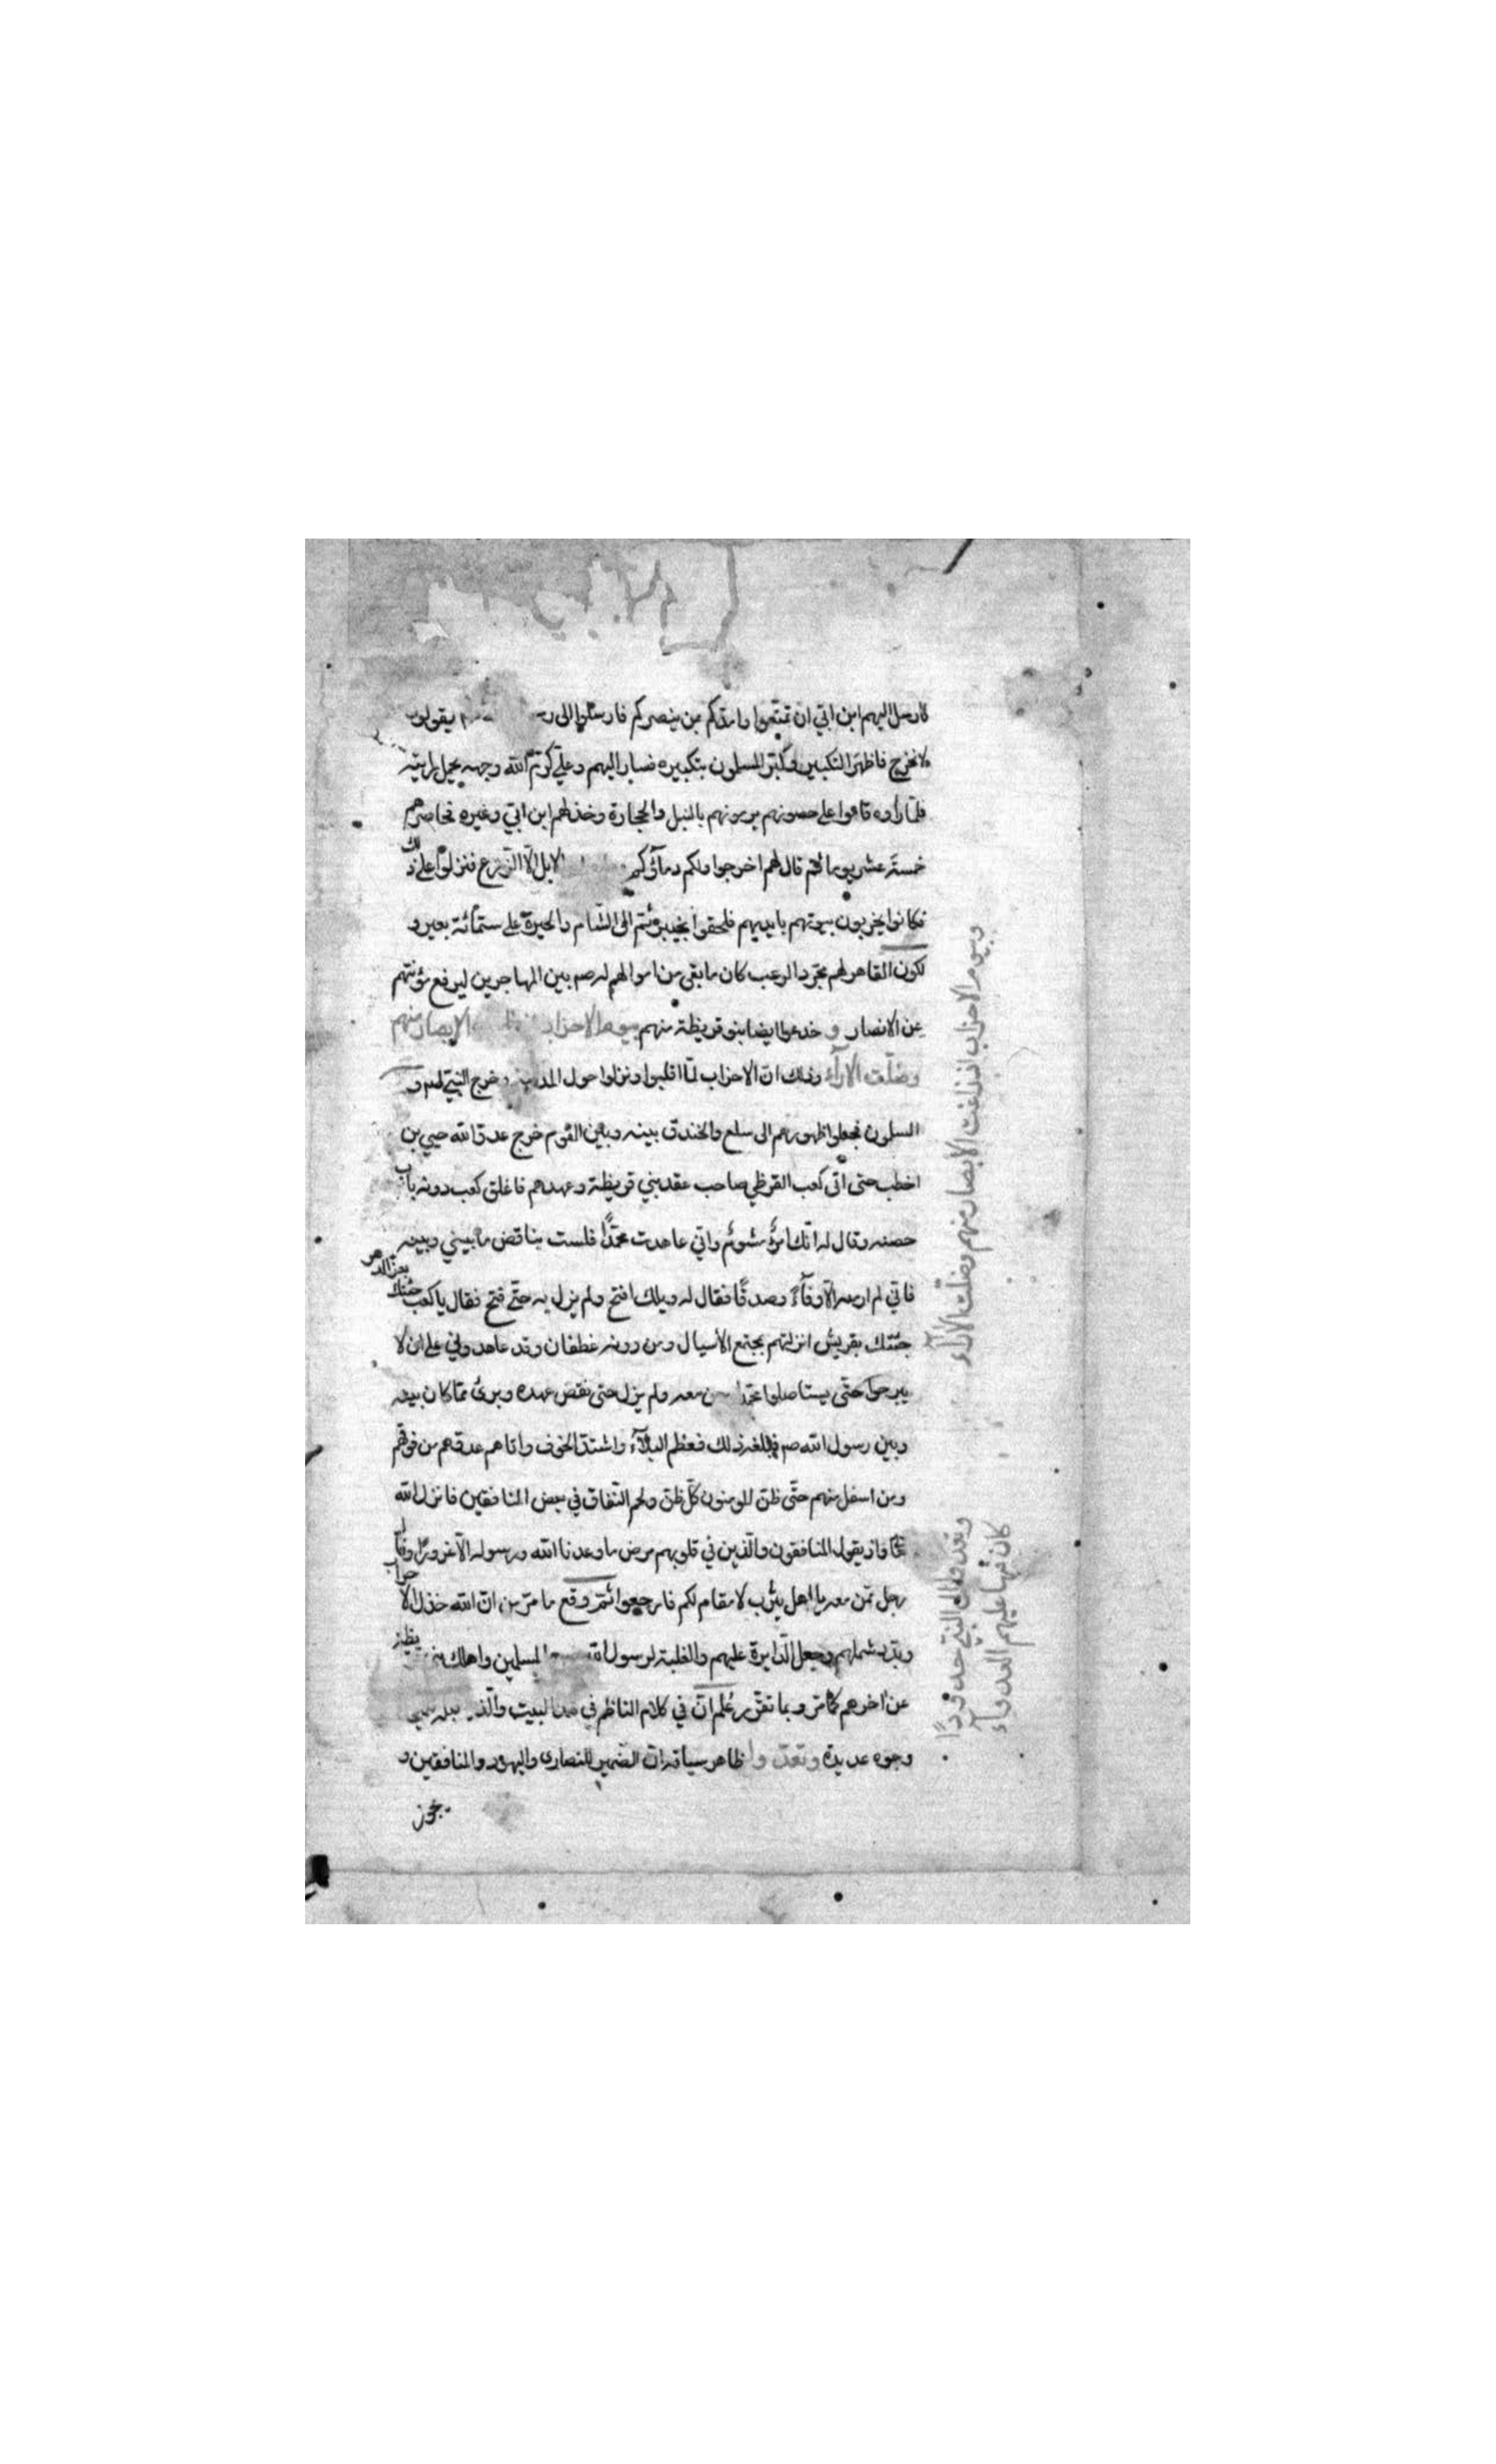 فارسل اليهم ابن ابي ان تمنعوا وامدكم من ينصركم فارسلوا الى يقولون
لا نخرج فاظهر التكبير وكبر المسلمون بتكبيره فسار اليهم وعلي كرم الله وجهه يحمل رايته
فلما رأوه قاموا على حصونهم يرمونهم بالنبل والحجارة وخذلهم ابن ابي وغيره فحاصرهم
خمسة عشر يوما ثم قال لهم اخرجوا ولكم دمآؤكم الابل الا الدرع فنزلوا على ذلك
فكانوا يخربون بيوتهم بايديهم فلحقوا بخيبر وثم الى الشام والحيرة على ستمائة بعير و
لكون القاهر لهم مجرد الرعب كان ما بقي من اموالهم له صم بين المهاجرين ليرفع مؤنتهم
عن الانصار و خدعوا ايضا بنو قريظة منهم بيوم الاحزاب الابصار منهم
وضلّت الآراء وذلك ان الاحزاب لما اقبلوا ونزلوا حول المدينة وخرج النبي صم و
المسلمون فجعلوا ظهورهم الى سلع والخندق بينه وبين القوم خرج عدو الله حيي بن
اخطب حتى اتى كعب القرظي صاحب عقد بني قريظة وعهدهم فاغلق كعب دونه باب
حصنه وقال له انك امرؤ مشوئم واني عاهدت محمدًا فلست بناقض ما بيني وبينه
فاني لم ار منه الا وفآءً وصدقًا فقال له ويلك افتح ولم يزل به حتى فتح فقال يا كعب جئتك بعز الدهر
جئتك بقريش انزلتهم بمجتمع الأسيال ومن دونه غطفان وقد عاهدوني على ان لا
يبرحوا حتى يستاصلوا محمدا ومن معه ولم يزل حتى نقض عهده وبرئ مما كان بينه
وبين رسول الله صم فبلغه ذلك فعظم البلآء واشتد الخوف واتاهم عدوهم من فوقهم
ومن اسفل منهم حتى ظن المومنون كل ظن ونجم النفاق في بعض المنافقين فانزل الله
تعا واذ يقول المنافقون والذين في قلوبهم مرض ما وعدنا الله ورسوله الا غرورا وقال
رجل ممن معه يا اهل يثرب لا مقام لكم فارجعوا ثم وقع ما مر من ان الله خذل الاحزاب
وبدد شملهم وجعل الدايرة عليهم والغلبة لرسول الله المسلمين واهلك قريظة
عن اخرهم كما مر وبما تقرر علم ان في كلام الناظم في هذا البيت والذي قبله
وجوه عديدة وتعدوا ظاهر سياقه ان الضمير للنصارى واليهود والمنافقين و
يجوز
وبيوم الاحزاب اذ زاغت الابصار منهم وضلّت الآراء
وتعدوا الى النبي حدودًا
كان فيها عليهم العدوآء